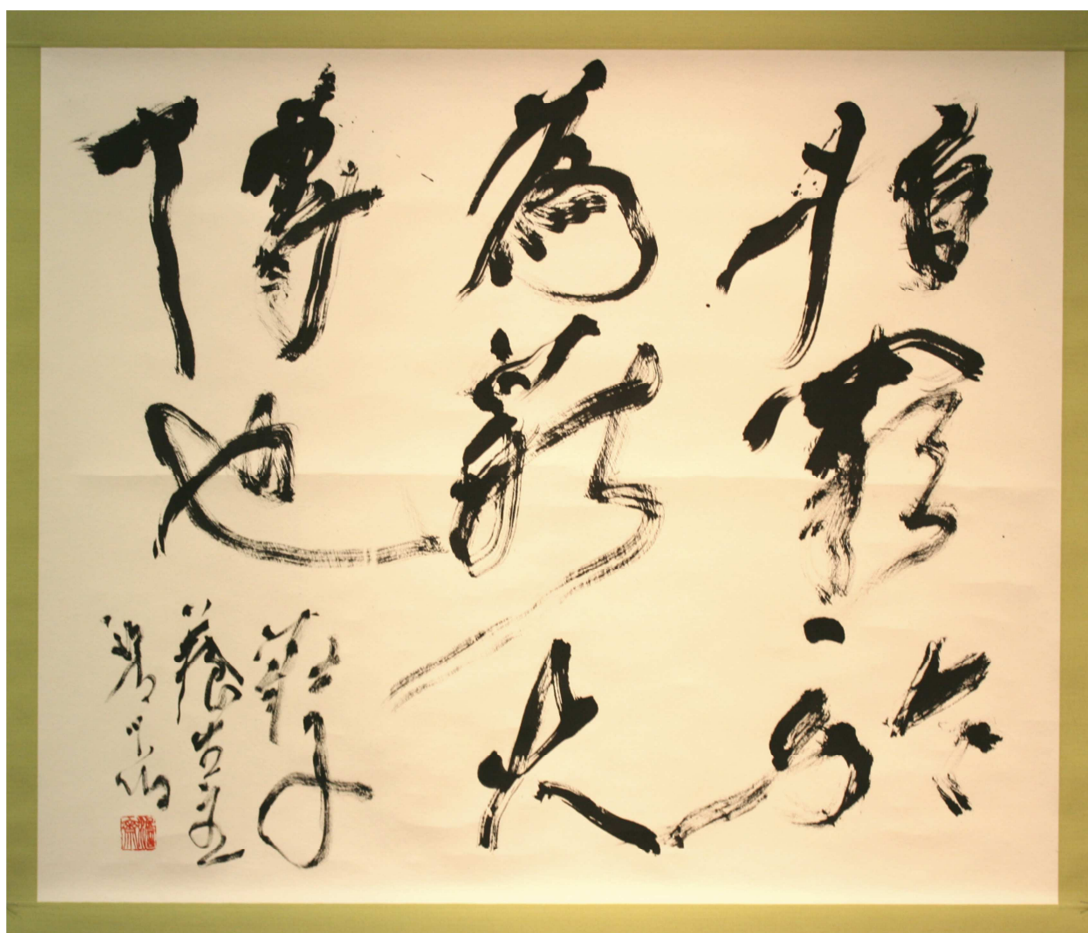 指窮於
為薪火
傳也
莊子
養生主